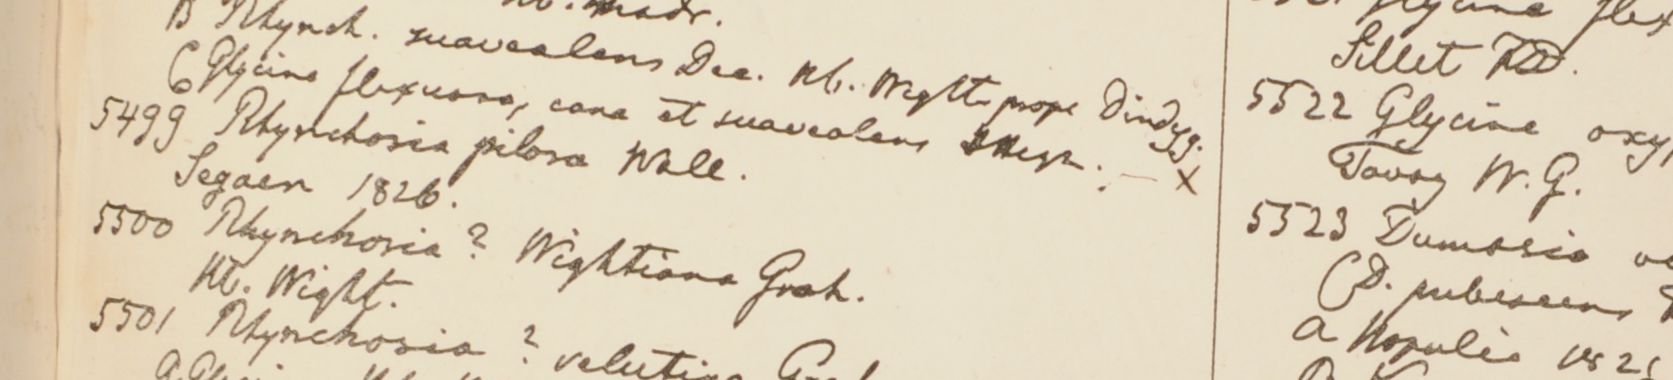 Hb. Madr.
B Rhynch. suaveolens Dec. Hb. Wight prope Dindyg.
C Glycine flexuosa, cana et suaveolens Heyn. — X
5499 Rhynchosia pilosa Wall.
Segaen 1826.
5500 Rhynchosia? Wightiana Grah.
Hb. Wight.
5501 Rhynchosia? velutina Grah
Glycine flex
Sillet FD.
5522 Glycine oxy
Tavoy W. G.
5523 Dumasia
(D. pubescens
a Napalia 1821